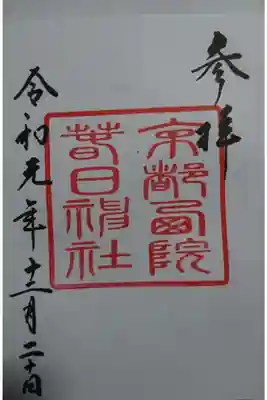 参拝
京都西院
春日神社
令和元年十二月二十日